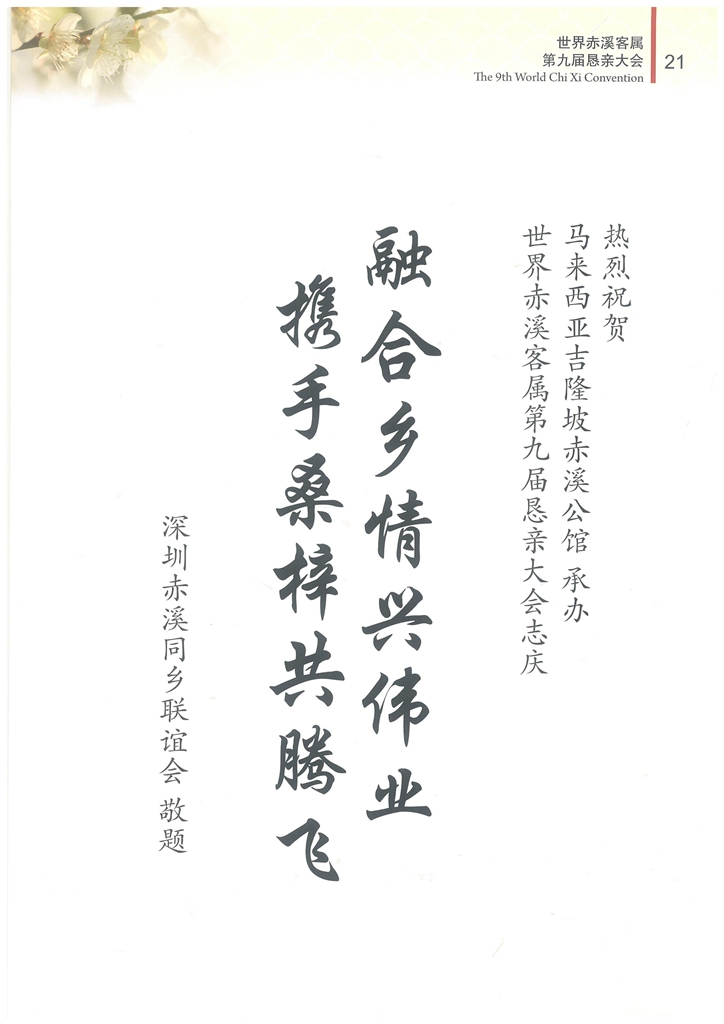 世界赤溪客属
第九届恳亲大会
The 9th World Chi Xi Convention
21
热烈祝贺
马来西亚吉隆坡赤溪公馆 承办
世界赤溪客属第九届恳亲大会志庆
融合乡情兴伟业
携手桑梓共腾飞
深圳赤溪同乡联谊会 敬题